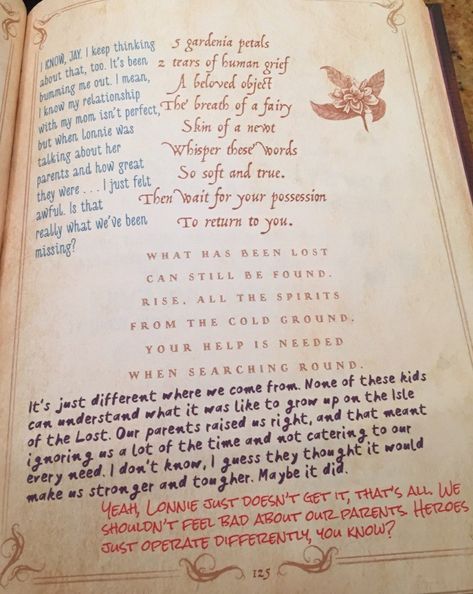 I KNOW, JAY. I keep thinking
about that, too. It's been
bumming me out. I mean,
I know my relationship
with my mom isn't perfect,
but when Lonnie was
talking about her
parents and how great
they were . . . I just felt
awful. Is that
really what we've been
missing?
5 gardenia petals
2 tears of human grief
A beloved object
The breath of a fairy
Skin of a newt
Whisper these words
So soft and true.
Then wait for your possession
To return to you.
WHAT HAS BEEN LOST
CAN STILL BE FOUND.
RISE, ALL THE SPIRITS
FROM THE COLD GROUND.
YOUR HELP IS NEEDED
WHEN SEARCHING ROUND.
It's just different where we come from. None of these kids
can understand what it was like to grow up on the Isle
of the Lost. Our parents raised us right, and that meant
ignoring us a lot of the time and not catering to our
every need. I don't know, I guess they thought it would
make us stronger and tougher. Maybe it did.
YEAH, LONNIE JUST DOESN'T GET IT, THAT'S ALL. WE
SHOULDN'T FEEL BAD ABOUT OUR PARENTS. HEROES
JUST OPERATE DIFFERENTLY, YOU KNOW?
125